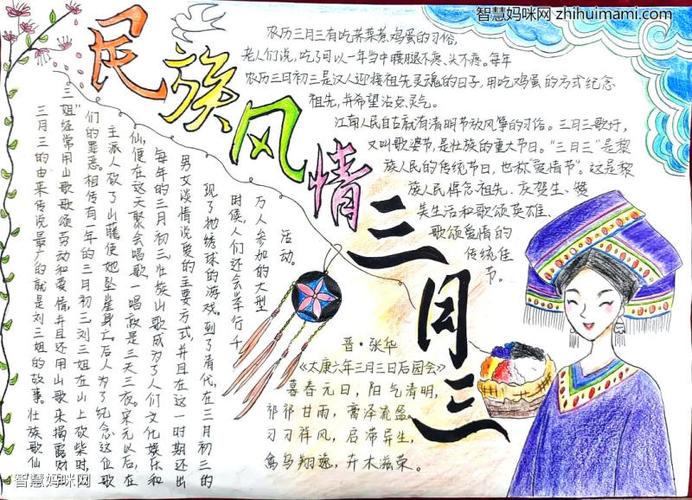 智慧妈咪网 zhihuimami.com
民族风情三月三
农历三月三有吃荠菜煮鸡蛋的习俗,
老人们说,吃了可以一年当中腰腿不疼、头不疼。每年
农历三月初三是汉人迎接祖先灵魂的日子,用吃鸡蛋的方式纪念
祖先,并希望沾点灵气。
江南人民自古就有清明节放风筝的习俗。三月三歌圩,
又叫歌婆节,是壮族的重大节日。"三月三"是黎
族人民的传统节日,也称"爱情节"。这是黎
族人民悼念祖先、庆贺生、赞
美生活和歌颂英雄、
歌颂爱情的
传统佳
节。
三月三的由来传说最广的就是刘三姐的故事。壮族歌仙
三姐"经常用山歌歌颂劳动和爱情,并且还用山歌来揭露财
们的罪恶。相传有一年的三月初三刘三姐在山上砍柴时,
主派人砍了山藤使她坠崖身亡。后人为了纪念这位歌
仙,便在这天聚会唱歌一唱就是三天三夜。宋元以后,在
每年的三月初三壮族山歌成为了人们文化娱乐和
男女谈情说爱的主要方式,并且在这一时期还出
现了抛绣球的游戏。到了清代,在三月初三的
时候,人们还会举行千
万人参加的大型
活动。
晋·张华
《太康六年三月三日后园会》
暮春元日,阳气清明,
祁祁甘雨,膏泽流盈。
习习祥风,启滞导生,
禽鸟翔逸,卉木滋荣。
智慧妈咪网